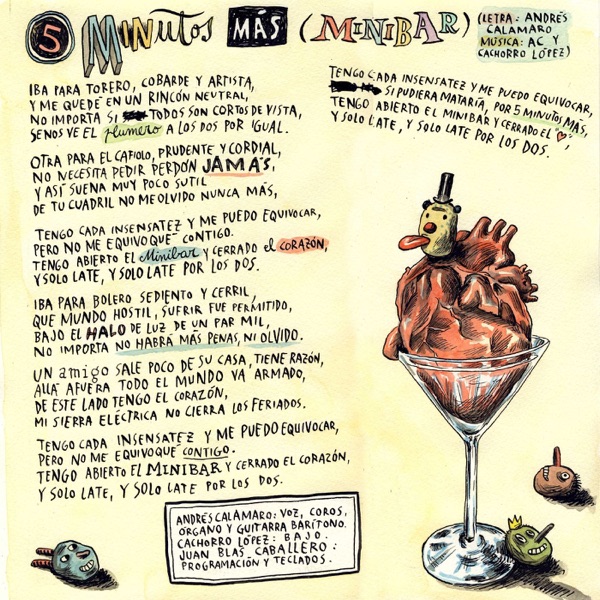 5 MINUTOS MÁS (MINIBAR)
(LETRA: ANDRÉS
CALAMARO
MÚSICA: AC Y
CACHORRO LÓPEZ)
IBA PARA TORERO, COBARDE Y ARTISTA,
Y ME QUEDÉ EN UN RINCÓN NEUTRAL,
NO IMPORTA SI TODOS SON CORTOS DE VISTA,
SE NOS VE EL plumero A LOS DOS POR IGUAL.
OTRA PARA EL CAFIOLO, PRUDENTE Y CORDIAL,
NO NECESITA PEDIR PERDÓN JAMÁS,
Y ASÍ SUENA MUY POCO SUTIL
DE TU CUADRIL NO ME OLVIDO NUNCA MÁS,
TENGO CADA INSENSATEZ Y ME PUEDO EQUIVOCAR,
PERO NO ME EQUIVOQUÉ CONTIGO.
TENGO ABIERTO EL Minibar Y CERRADO el CORAZÓN,
Y SOLO LATE, Y SOLO LATE POR LOS DOS.
IBA PARA BOLERO SEDIENTO Y CERRIL,
QUE MUNDO HOSTIL, SUFRIR FUE PERMITIDO,
BAJO EL HALO DE LUZ DE UN PAR MIL,
NO IMPORTA NO HABRÁ MÁS PENAS, NI OLVIDO.
UN amigo SALE POCO DE SU CASA, TIENE RAZÓN,
ALLÁ AFUERA TODO EL MUNDO VA ARMADO,
DE ESTE LADO TENGO EL CORAZÓN,
MI SIERRA ELÉCTRICA NO CIERRA LOS FERIADOS.
TENGO CADA INSENSATEZ Y ME PUEDO EQUIVOCAR,
PERO NO ME EQUIVOQUÉ CONTIGO.
TENGO ABIERTO EL MINIBAR Y CERRADO EL CORAZÓN,
Y SOLO LATE, Y SOLO LATE POR LOS DOS.
TENGO CADA INSENSATEZ Y ME PUEDO EQUIVOCAR,
SI PUDIERA MATARÍA, POR 5 MINUTOS MÁS,
TENGO ABIERTO EL MINIBAR Y CERRADO EL "♥",
Y SOLO LATE, Y SOLO LATE POR LOS DOS.
ANDRÉS CALAMARO: VOZ, COROS,
ÓRGANO Y GUITARRA BARÍTONO.
CACHORRO LÓPEZ: BAJO.
JUAN BLAS CABALLERO:
PROGRAMACIÓN Y TECLADOS.